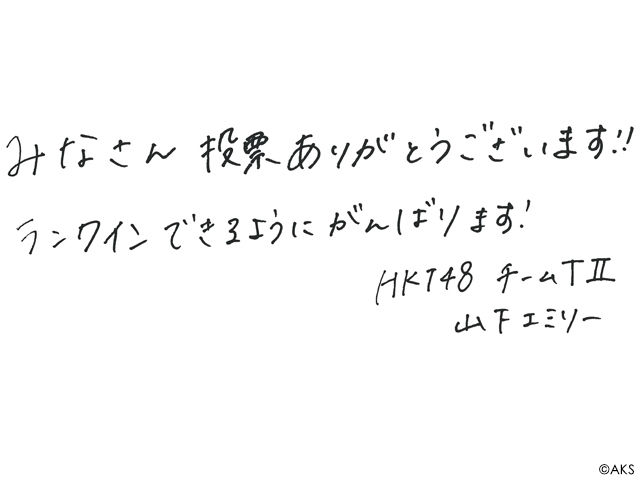 みなさん 投票ありがとうございます!!
ランクインできるようにがんばります!
HKT48 チームTⅡ
山下エミリー
©AKS